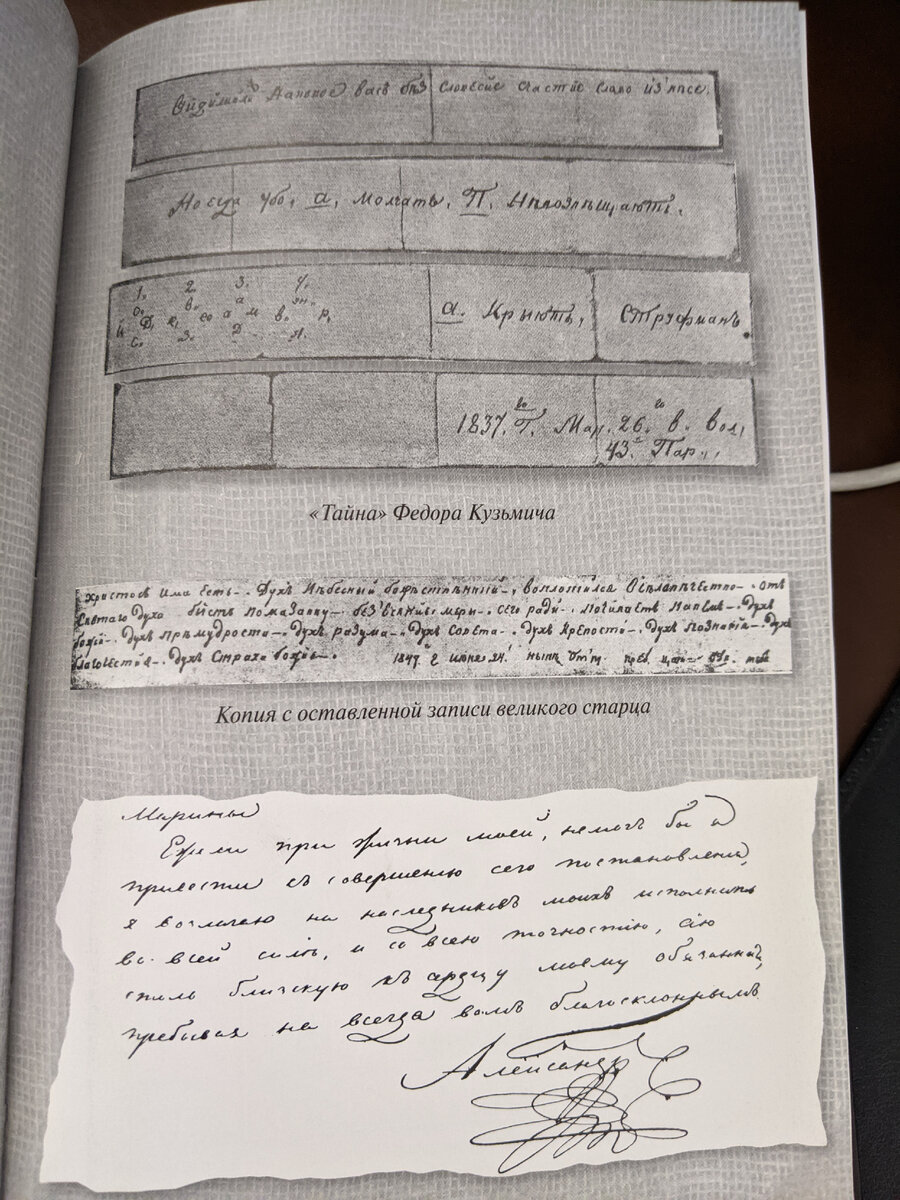 Видишили Наконое васъ безъ словесие счастие слово изнесе.
Но егда убо, а, молчатъ, П, Невозвѣщаютъ.
1. 2. 3. 4.
о. в. а зн.
й Д, к, ео а м в. р,
с. З. Д - я.
а. Крыютъ, Струфианъ.
1837. г. Мар. 26. в. вол,
43. Пар.
«Тайна» Федора Кузьмича
Христосъ има есть Духъ Небесный божественный, воплотійся отъ
Святаго Духа бысть помазанну без всякие меры сего ради Духъ
божий. Духъ премудрости. Духъ разума. Духъ совета. Духъ крепости. Духъ познания. Духъ
благочестия. Духъ Страха божия. 1849
Копия с оставленной записи великого старца
Марины
Ежели при жизни моей, немогъ бы я
привости къ совершению сего постановления,
я возлагаю на наследниковъ моихъ исполнить
во всей силѣ, и со всею точностію, сію
столь близкую къ сердцу моему обязанность,
пребывая на всегда вамъ благосклоннымъ
Александръ